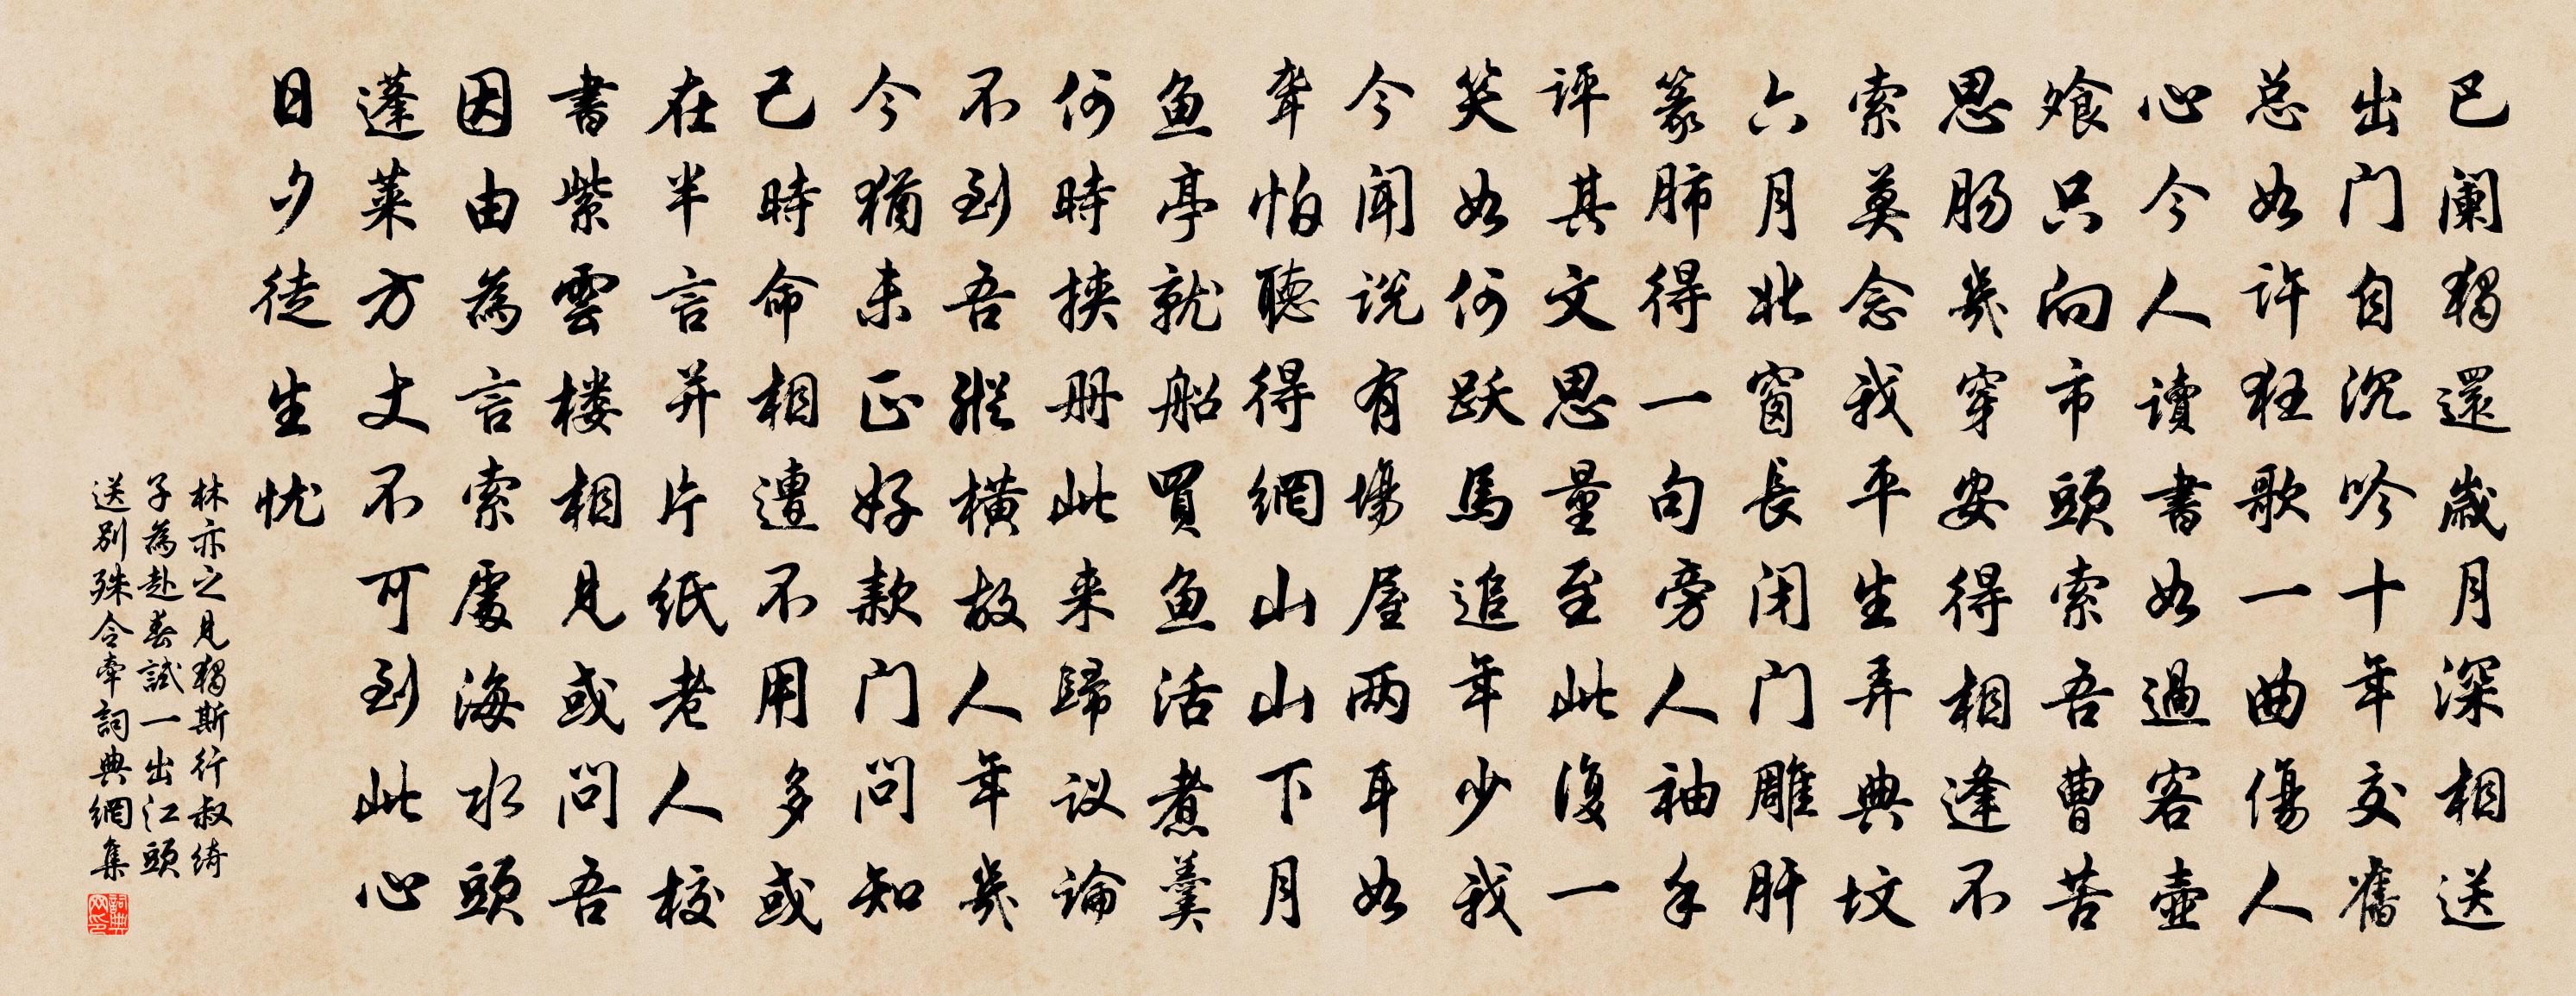 已阑獨還歲月深相送
出门自沉吟十年交舊
总如许狂歌一曲傷人
心今人讀書如過客壺
飧只向市頭索吾曹苦
思肠幾穿安得相逢不
索莫念我平生弄典坟
六月北窗長闭门雕肝
篆肺得一句旁人袖手
评其文思量至此復一
笑如何跃馬追年少我
今闻说有場屋两耳如
聋怕聽得網山山下月
鱼亭就船買鱼活煮羹
何時挟册此来歸议論
不到吾縱橫故人年幾
今猶未正好款门問知
己時命相遭不用多或
在半言并片纸老人校
書紫雲楼相見或問吾
因由為言索處海水頭
蓬莱方丈不可到此心
日夕徒生忧
林亦之見獨斯行叔綺
子為赴春試一出江頭
送别殊令牵詞典網集
詞典网印